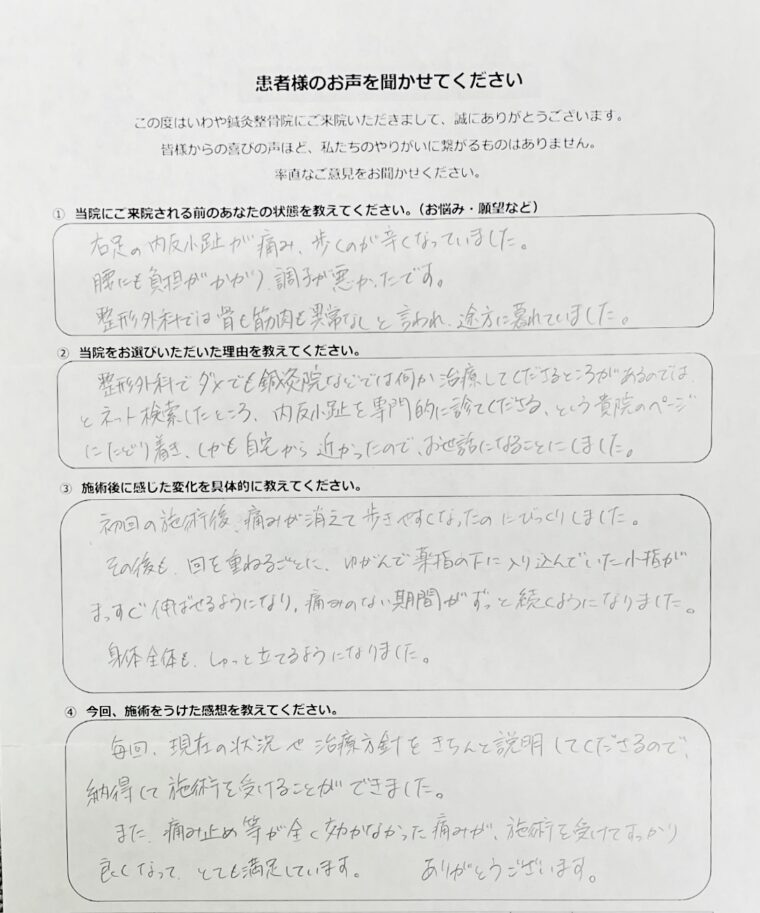 患者様のお声を聞かせてください
この度はいわや鍼灸整骨院にご来院いただきまして、誠にありがとうございます。
皆様からの喜びの声ほど、私たちのやりがいに繋がるものはありません。
率直なご意見をお聞かせください。
① 当院にご来院される前のあなたの状態を教えてください。（お悩み・願望など）
右足の内反小趾が痛み、歩くのが辛くなっていました。
腰にも負担がかかり、調子が悪かったです。
整形外科では骨も筋肉も異常なしと言われ、途方に暮れていました。
② 当院をお選びいただいた理由を教えてください。
整形外科でダメでも鍼灸院などでは何か治療してくださるところがあるのでは、
とネット検索したところ、内反小趾を専門的に診てくださる、という貴院のページ
にたどり着き、しかも自宅から近かったので、お世話になることにしました。
③ 施術後に感じた変化を具体的に教えてください。
初回の施術後、痛みが消えて歩きやすくなったのにびっくりしました。
その後も、回を重ねるごとに、ゆがんで薬指の下に入り込んでいた小指が
まっすぐ伸ばせるようになり、痛みのない期間がずっと続くようになりました。
身体全体も、しゅっと立てるようになりました。
④ 今回、施術をうけた感想を教えてください。
毎回、現在の状況や治療方針をきちんと説明してくださるので、
納得して施術を受けることができました。
また、痛み止め等が全く効かなかった痛みが、施術を受けてすっかり
良くなって、とても満足しています。 ありがとうございます。